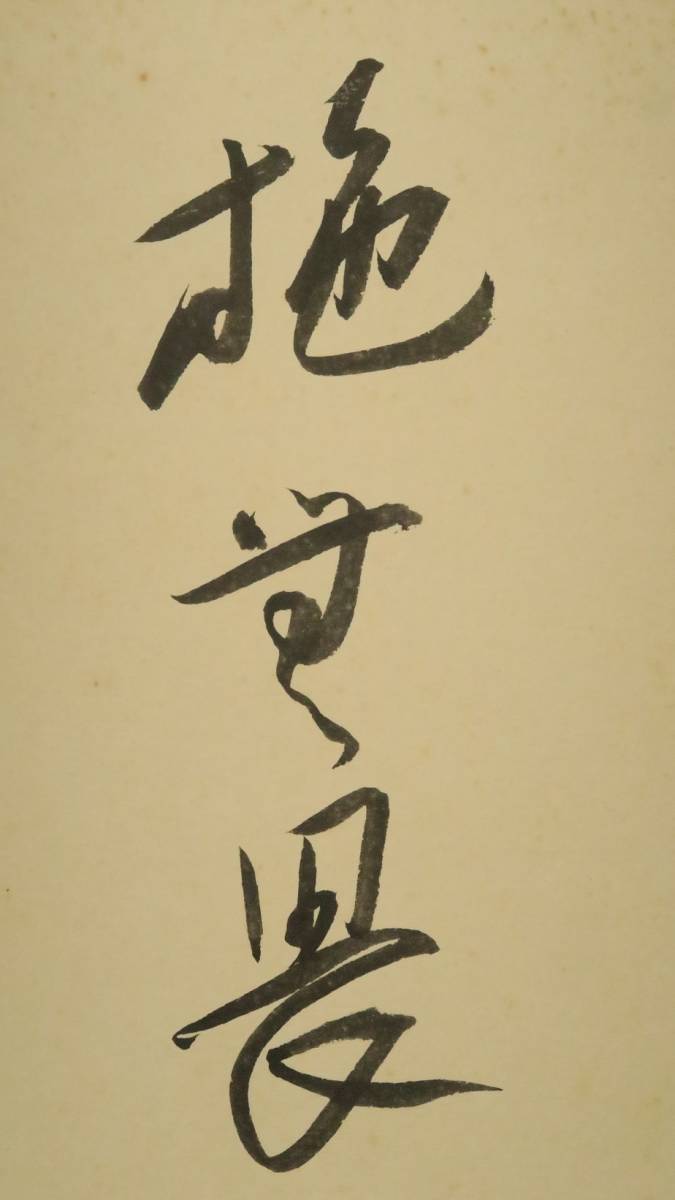 施無畏